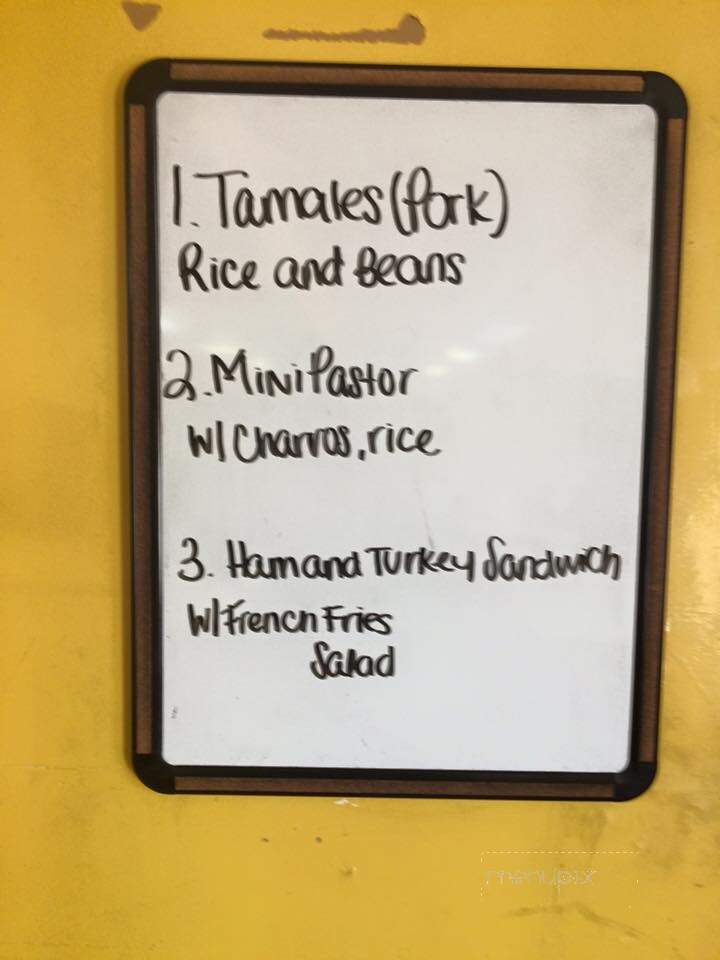 1. Tamales (Pork)
Rice and Beans
2. Mini Pastor
W/ Charros, rice
3. Ham and Turkey Sandwich
W/ French Fries
Salad
menupix